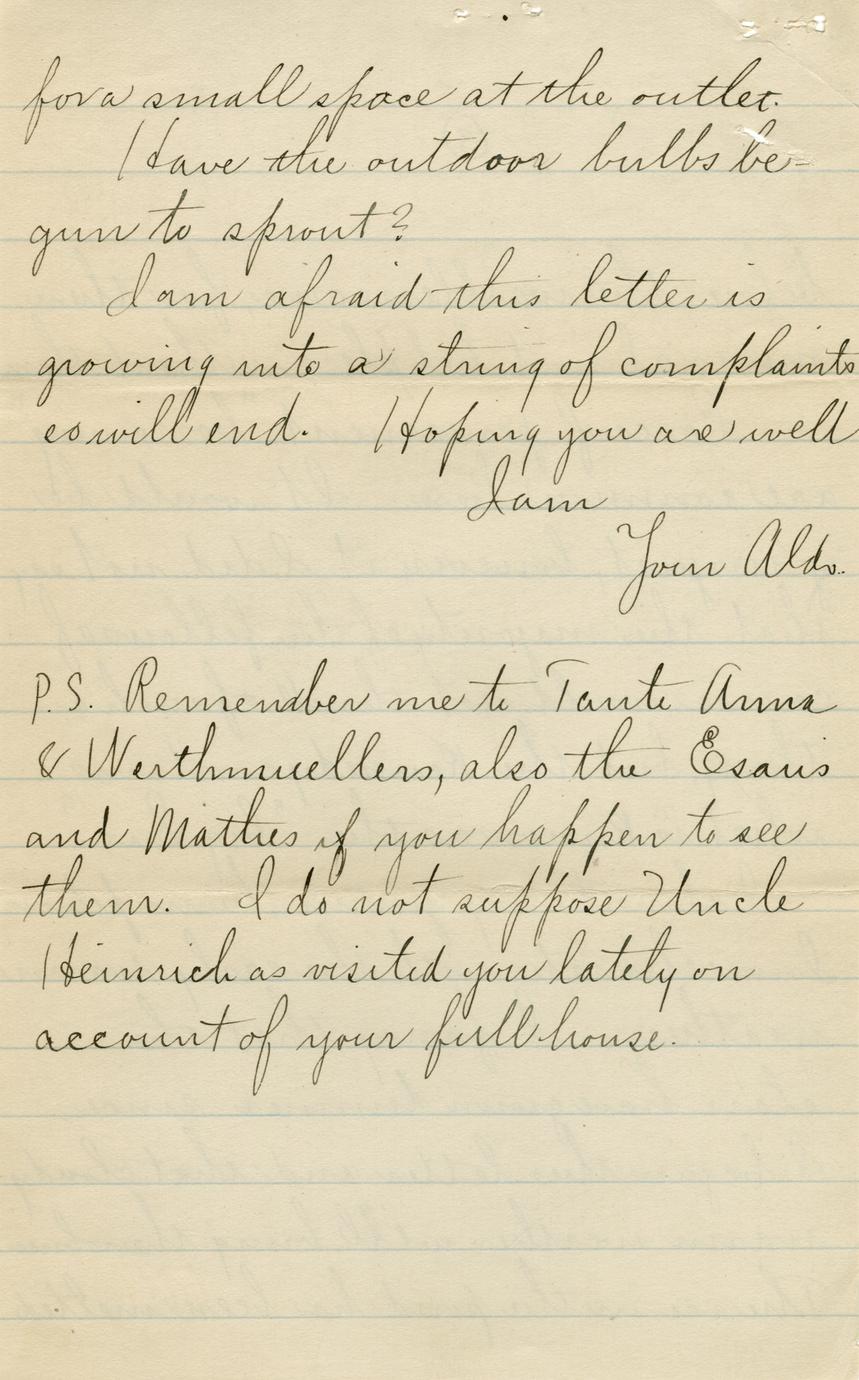 for a small space at the outlet.
Have the outdoor bulbs be-
gun to sprout?
I am afraid this letter is
growing into a string of complaints
so will end. Hoping you are well
I am
Your Aldo.
P.S. Remember me to Tante Anna
& Werthmuellers, also the Esaus
and Mathes if you happen to see
them. I do not suppose Uncle
Heinrich as visited you lately on
account of your full house.